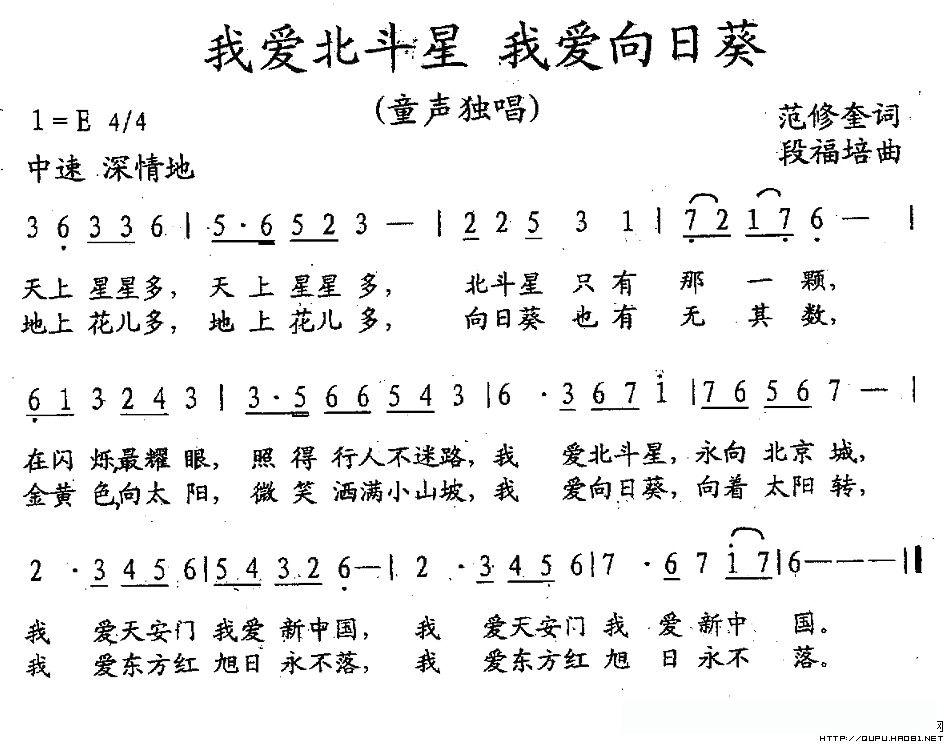 我爱北斗星 我爱向日葵
(童声独唱)
1=E 4/4
范修奎词
中速 深情地
段福培曲
3 6̣ 3 3 6 | 5·6 5 2 3 — | 2 2 5 3 1 | 7̣ 2 1 7̣ 6̣ — |
天上 星星多, 天 上 星星 多, 北斗星 只 有 那 一 颗,
地上 花儿多, 地 上 花儿 多, 向日葵 也 有 无 其 数,
6̣ 1 3 2 4 3 | 3·5 6 6 5 4 3 | 6 · 3 6 7 i | 7 6 5 6 7 — |
在闪 烁,最耀 眼, 照 得 行人不迷路,我 爱北斗星,永向 北京 城,
金黄 色,向太 阳, 微 笑 洒满小山坡,我 爱向日葵,向着 太阳 转,
2 · 3 4 5 6 | 5 4 3 2 6̣ — | 2 · 3 4 5 6 | 7 · 6 7 i 7 | 6 — — — ‖
我 爱天安门 我爱 新中国, 我 爱天安门 我 爱 新中 国。
我 爱东方红 旭日 永不落, 我 爱东方红 旭 日 永不 落。
HTTP://QUPU.HAO81.NET